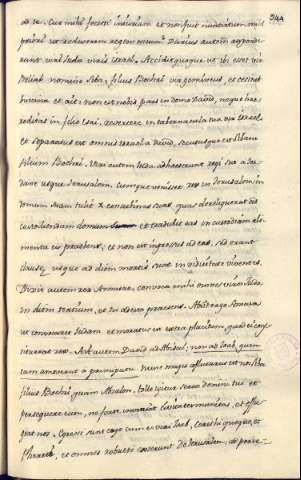 244
de te. Cur mihi fecisti iniuriam et non fuit nuntiatum mihi
priori ut reducerem regem meum? Durius autem respon-
derunt viri Iuda viris Israel. Accidit quoque ut ibi esset vir
Belial nomine Seba, filius Bochri vir gemineus, et cecinit
buccina et ait: non est nobis pars in David, neque hae-
reditas in filio Isai. revertere in tabernacula tua vir Israel.
et separatus est omnis Israel a David, secutusque est Seba
filium Bochri. Viri autem Iuda adhaeserunt regi suo a Ior-
dane usque Ierusalem. Cumque venisset rex in Ierusalem in
domum suam tulit X concubinas suas, quas dereliquerat ad
custodiendam domum et tradidit eas in custodiam ali-
menta eis praebens, et non est ingressus ad eas, sed erant
clausae usque ad diem mortis suae in viduitate viventes.
Dixit autem rex Amasae, convoca mihi omnes viros Iuda
in diem tertium, et tu adesto praesens. Abiit ergo Amasa
ut convocaret Iudam et moratus est extra placitum quod ei cons-
tituerat rex. Ait autem David ad Abisai, non ad Ioab, quem
iam amoverat a
filius Bochri quam Absalon. tolle igitur servos domini tui et
persequere eum, ne forte inveniat civitates munitas, et effu-
giat nos. Egressi sunt ergo cum eo viri Ioab, Cerethi quoque, et
Pheleti, et omnes robusti exierunt de Ierusalem, ad perse-